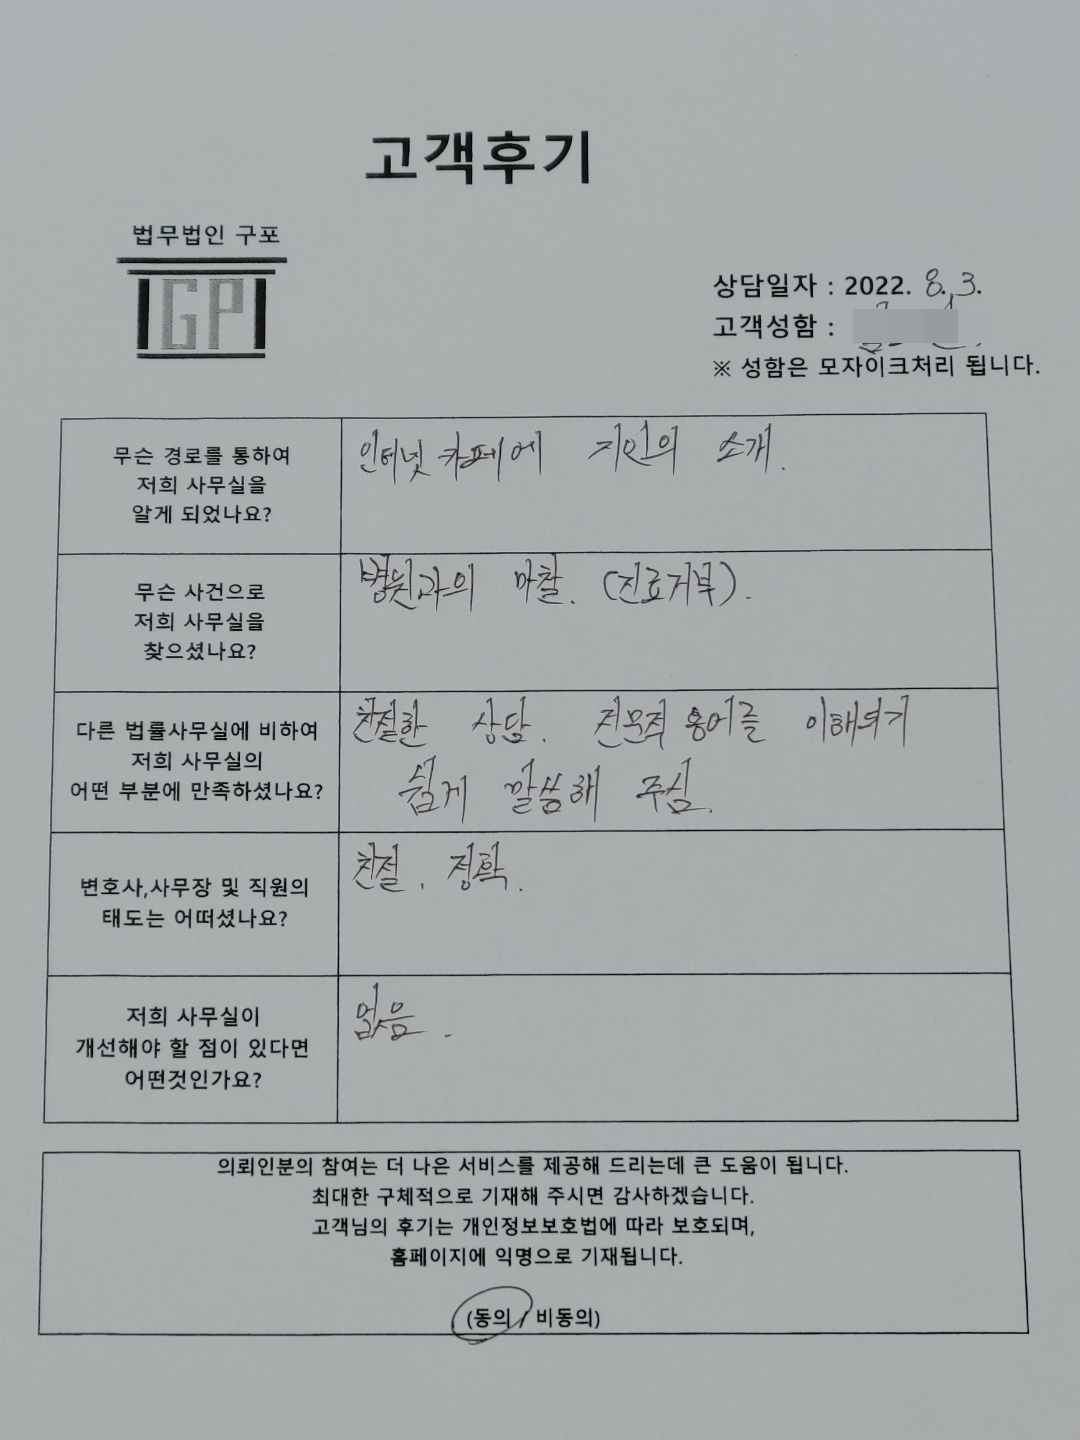 고객후기
법무법인 구포
GP
상담일자 : 2022. 8. 3.
고객성함 :
※ 성함은 모자이크처리 됩니다.
무슨 경로를 통하여
저희 사무실을
알게 되었나요?
인터넷 카페에 지인의 소개.
무슨 사건으로
저희 사무실을
찾으셨나요?
병원과의 마찰. (진료거부).
다른 법률사무실에 비하여
저희 사무실의
어떤 부분에 만족하셨나요?
친절한 상담. 전문적 용어를 이해되기
쉽게 말씀해 주심.
변호사,사무장 및 직원의
태도는 어떠셨나요?
친절, 정확.
저희 사무실이
개선해야 할 점이 있다면
어떤것인가요?
없음.
의뢰인분의 참여는 더 나은 서비스를 제공해 드리는데 큰 도움이 됩니다.
최대한 구체적으로 기재해 주시면 감사하겠습니다.
고객님의 후기는 개인정보보호법에 따라 보호되며,
홈페이지에 익명으로 기재됩니다.
(동의 / 비동의)